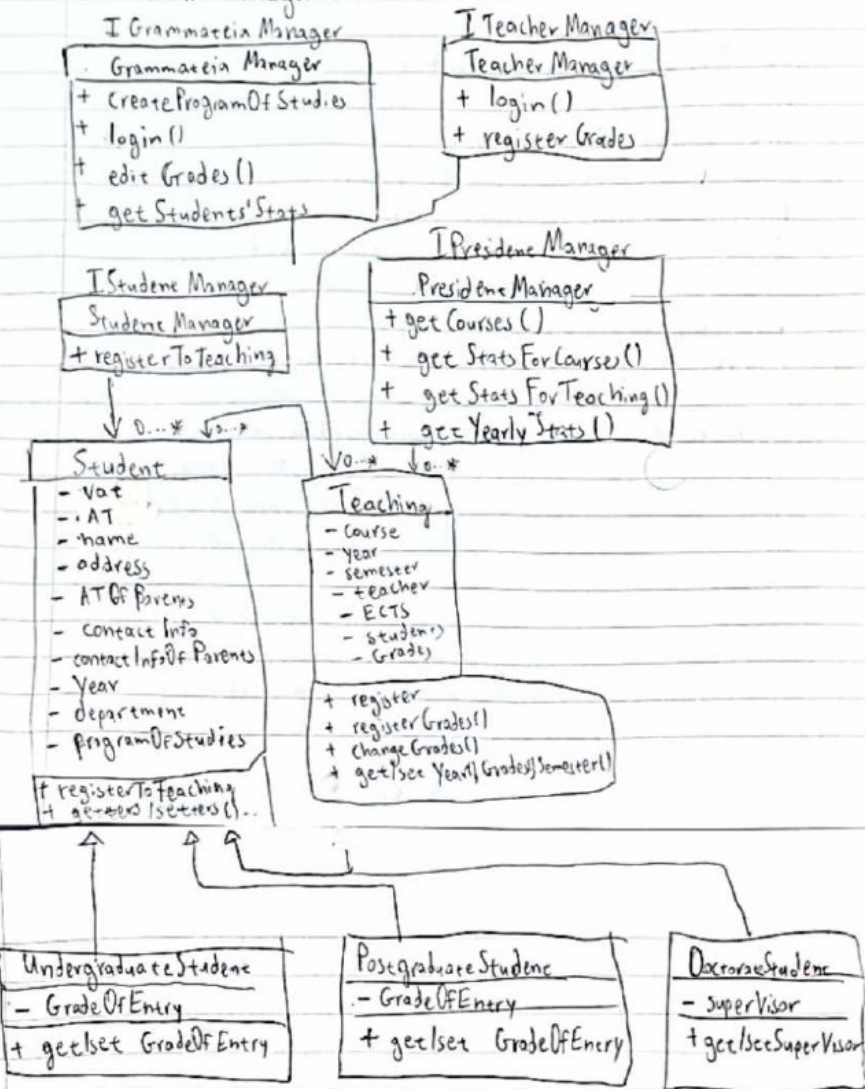 I Grammateia Manager
Grammateia Manager
+ CreateProgramOfStudies
+ login()
+ edit Grades()
+ get Students'Stats
I Teacher Manager
Teacher Manager
+ login()
+ register Grades
I Student Manager
Student Manager
+ registerToTeaching
I President Manager
President Manager
+ get Courses()
+ get Stats For Course()
+ get Stats For Teaching()
+ get Yearly Stats()
0...*
0...*
0...*
0...*
Student
- vat
- AT
- name
- address
- AT Of Parents
- contact Info
- contactInfoOf Parents
- Year
- department
- programOfStudies
+ registerToTeaching
+ getters/setters()..
Teaching
- course
- year
- semester
- teacher
- ECTS
- students
- Grades
+ register
+ registerGrades()
+ changeGrades()
+ get/set Year/Grades/Semester()
UndergraduateStudent
- GradeOfEntry
+ get/set GradeOfEntry
PostgraduateStudent
- GradeOfEntry
+ get/set GradeOfEntry
DoctorateStudent
- superVisor
+ get/setSuperVisor